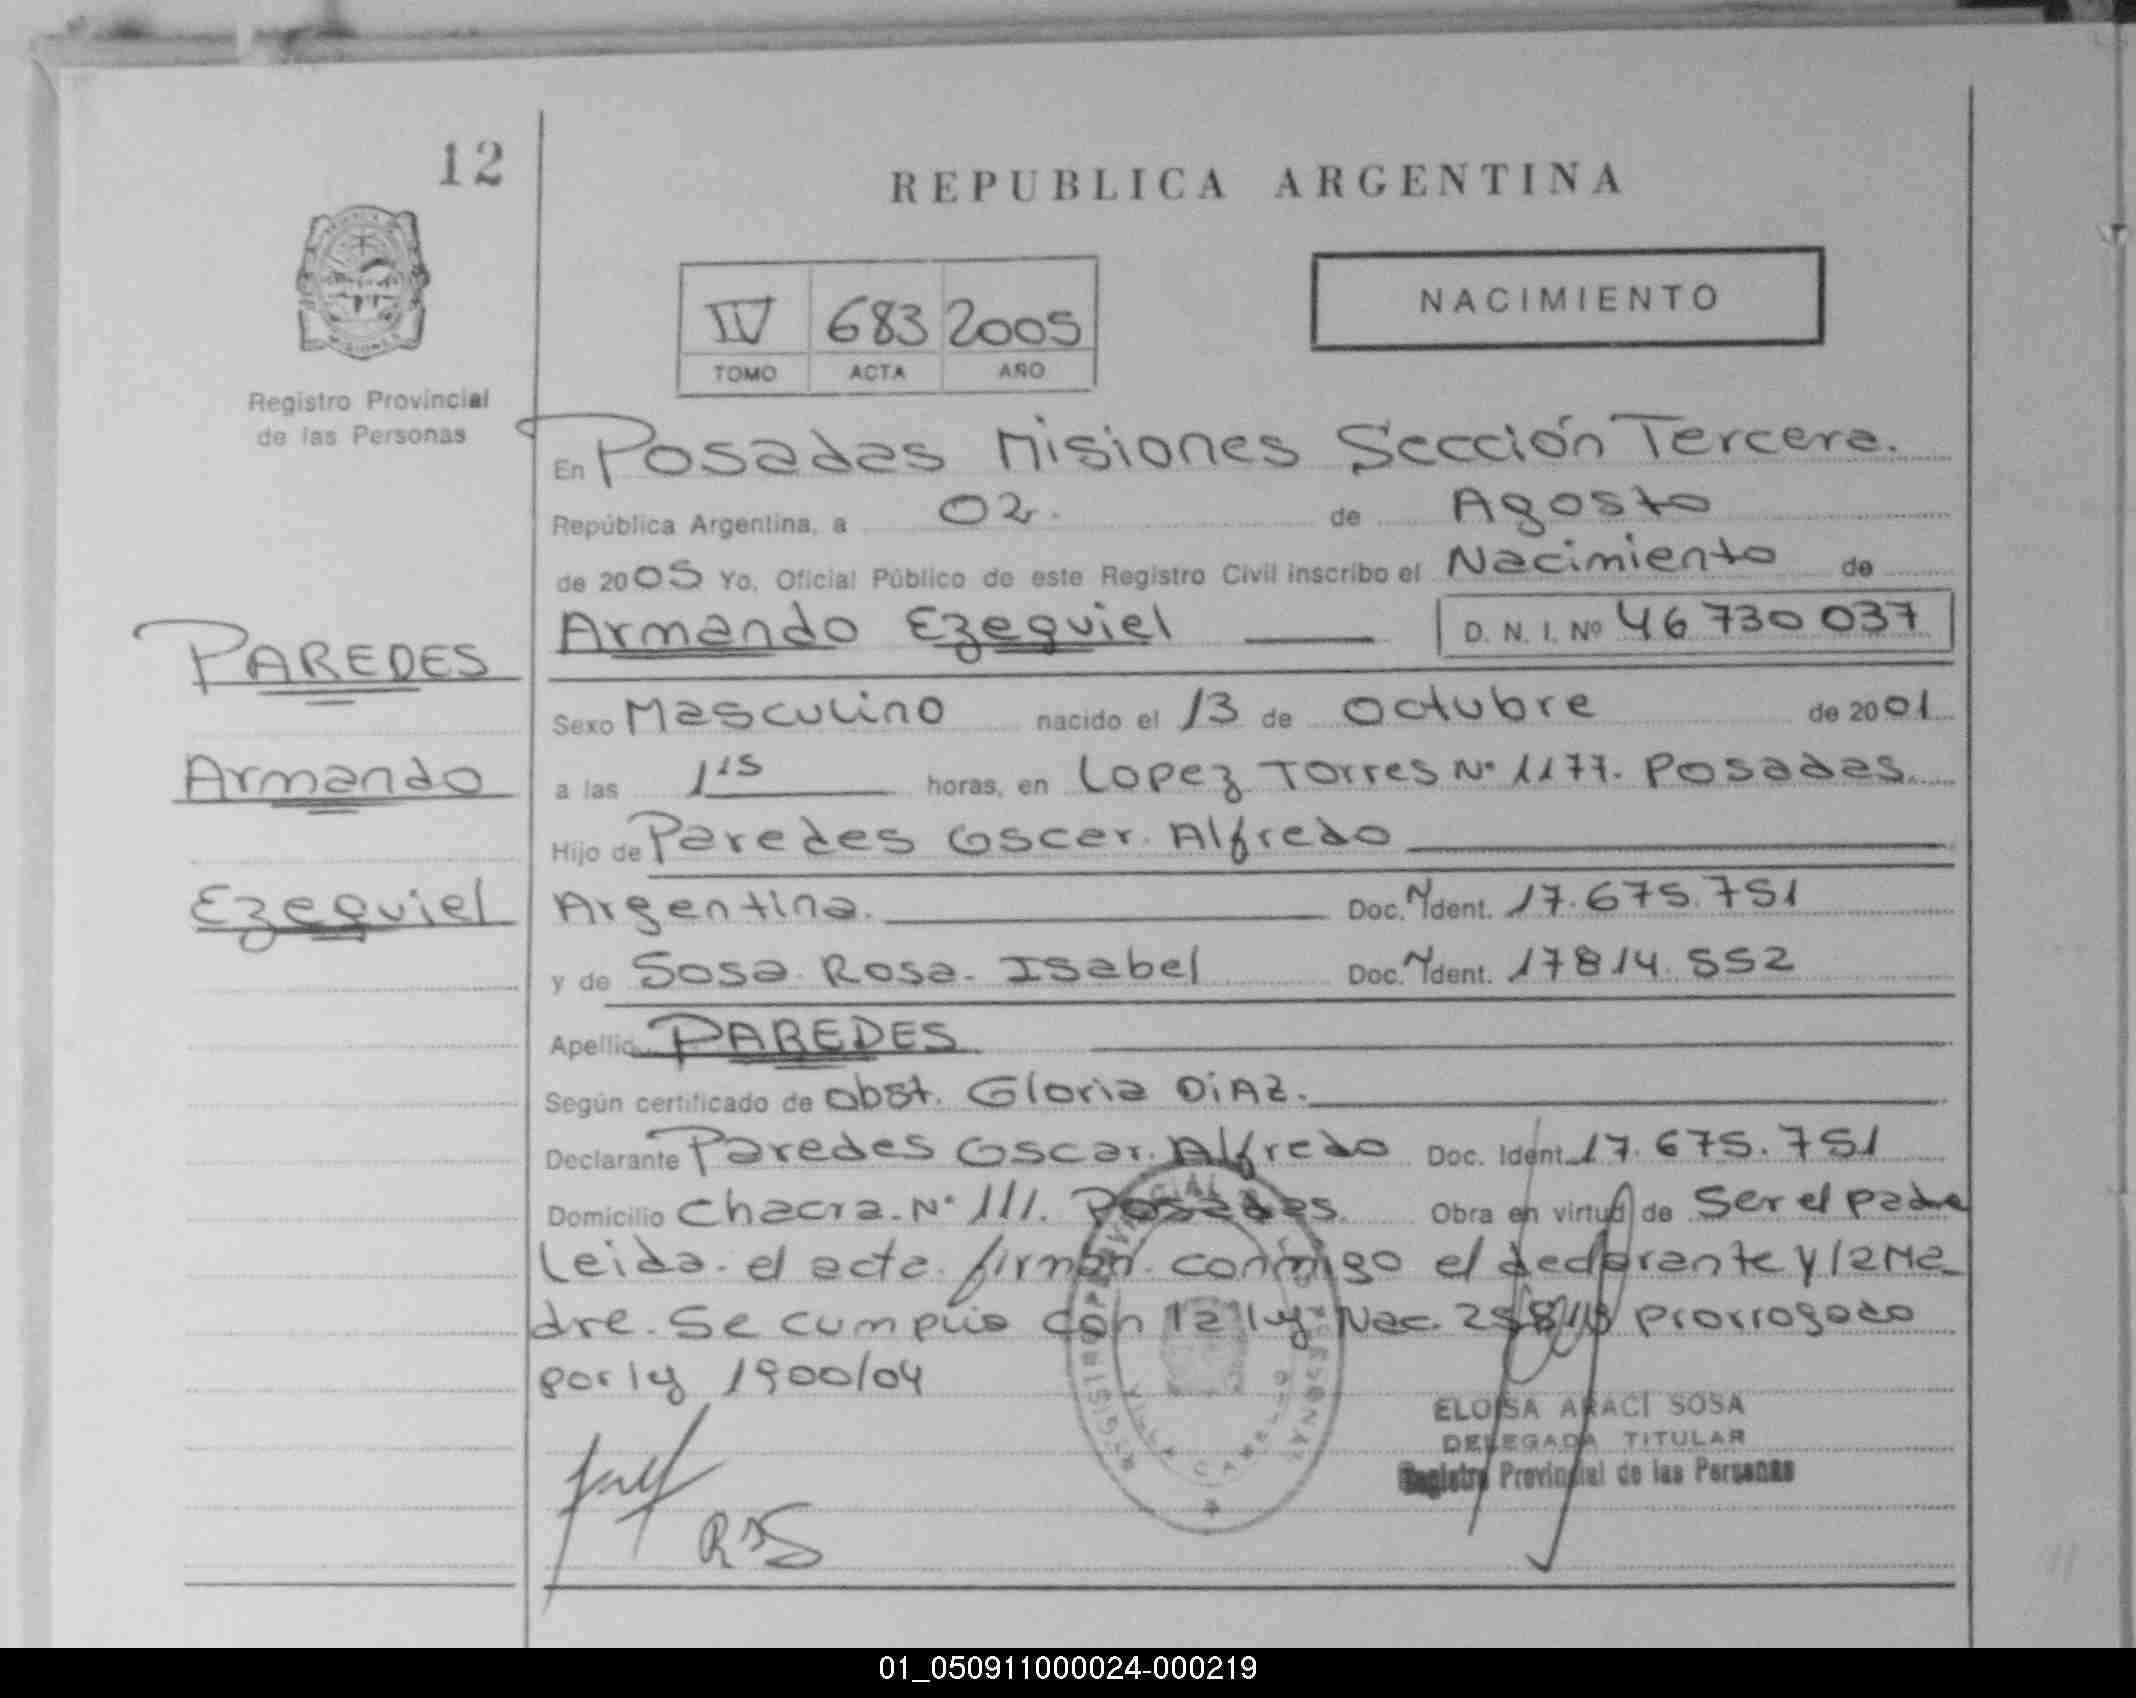 12
REPUBLICA ARGENTINA
IV 683 2005
TOMO ACTA AÑO
NACIMIENTO
Registro Provincial
de las Personas
En Posadas Misiones Sección Tercera.
República Argentina, a 02. de Agosto
de 2005 Yo, Oficial Público de este Registro Civil inscribo el Nacimiento de
Armando Ezequiel D. N. I. Nº 46 730 037
PAREDES
Armando
Ezequiel
Sexo Masculino nacido el 13 de octubre de 2001
a las 1 15 horas, en Lopez Torres Nº 1177. Posadas.
Hijo de Paredes Oscar. Alfredo
Argentina. Doc. Ident. 17.675.751
y de Sosa. Rosa. Isabel Doc. Ident. 17814.552
Apellido PAREDES
Según certificado de obst. Gloria DiAZ.
Declarante Paredes Oscar. Alfredo Doc. Ident. 17.675.751
Domicilio Chacra. Nº 111. Posadas. Obra en virtud de Ser el padre
Leida. el acta. firman. conmigo el declarante y la Ma
dre. Se cumplio con la ley Nac. prorrogado
por ley 1900/04
ELOISA ARACI SOSA
DELEGADA TITULAR
Registro Provincial de las Personas
VILLA CABELLO
01_050911000024-000219